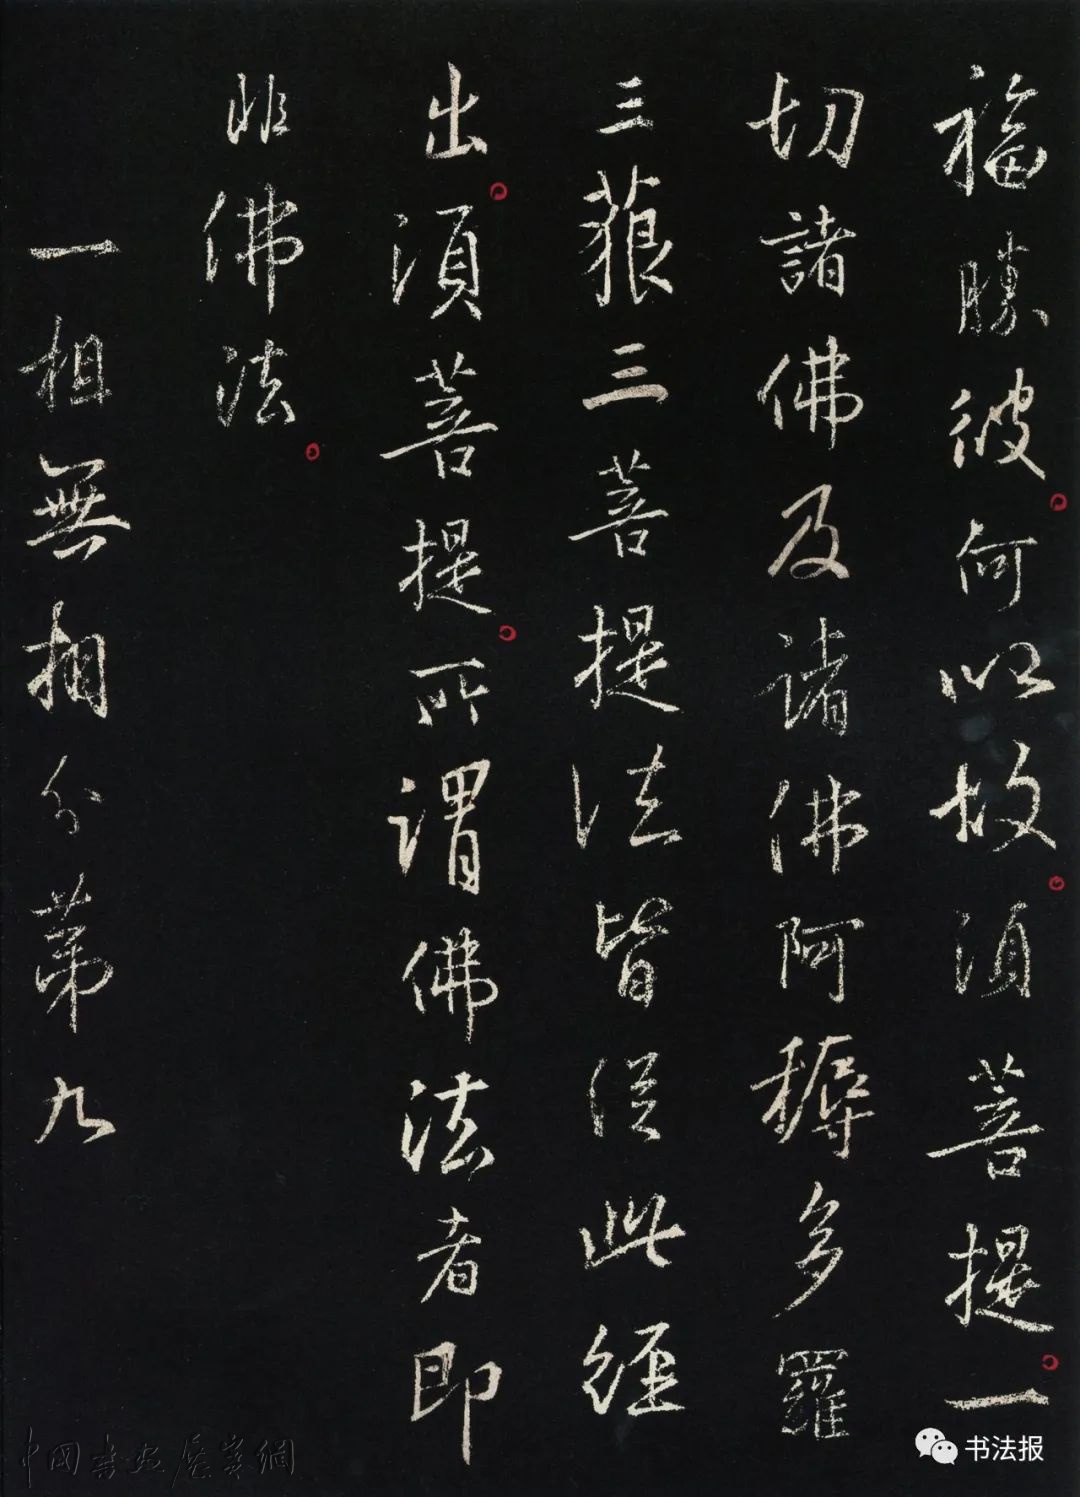 福勝彼何以故須菩提一
切諸佛及諸佛阿耨多羅
三藐三菩提法皆從此經
出須菩提所謂佛法者即
非佛法
一相無相分第九
中国书法展赛網
书法报